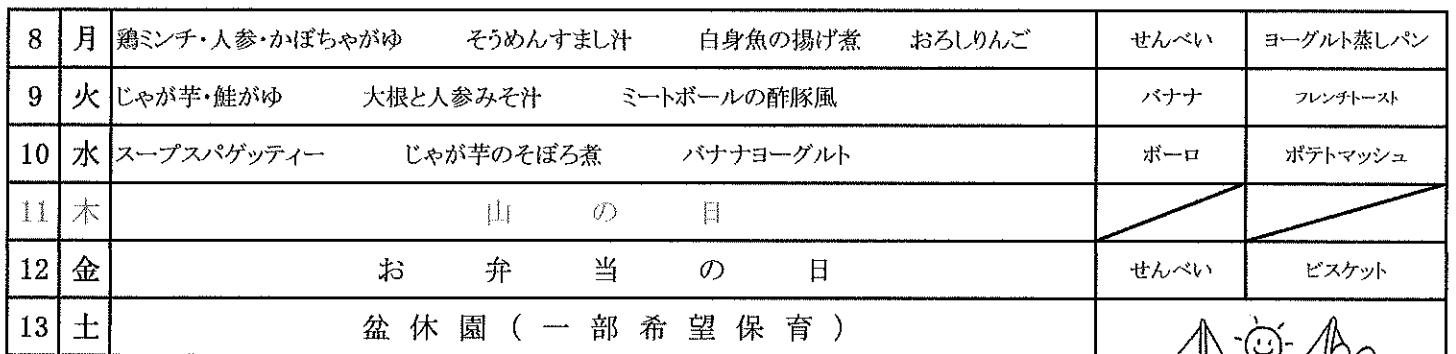 8 月 鶏ミンチ・人参・かぼちゃがゆ そうめんすまし汁 白身魚の揚げ煮 おろしりんご せんべい ヨーグルト蒸しパン
9 火 じゃが芋・鮭がゆ 大根と人参みそ汁 ミートボールの酢豚風 バナナ フレンチトースト
10 水 スープスパゲッティー じゃが芋のそぼろ煮 バナナヨーグルト ボーロ ポテトマッシュ
11 木 山の日
12 金 お弁当の日 せんべい ビスケット
13 土 盆休園(一部希望保育)